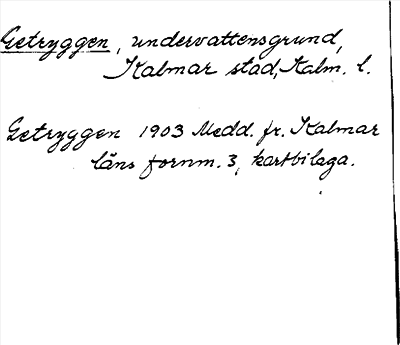 Getryggen, undervattensgrund,
Kalmar stad, Kalm. l.
Getryggen 1903 Medd. fr. Kalmar
läns fornm. 3, kartbilaga.